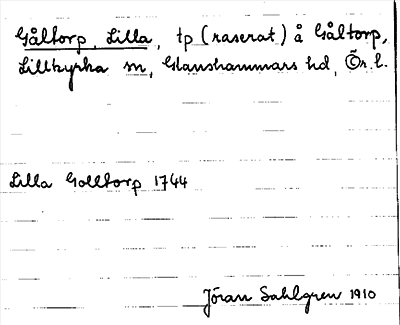 Gåltorp, Lilla, tp (raserat) å Gåltorp,
Lillkyrka sn, Glanshammars hd, Ör. l.
Lilla Golltorp 1744
Jöran Sahlgren 1910